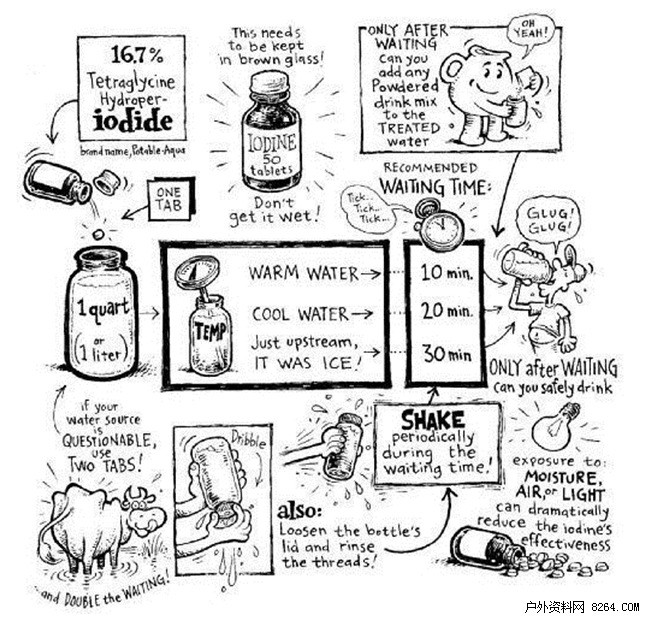 16.7%
Tetraglycine
Hydroper-
iodide
brand name, Potable-Aqua
This needs
to be kept
in brown glass!
IODINE
50
tablets
Don't
get it wet!
ONLY AFTER
WAITING
can you
add any
Powdered
drink mix
to the
TREATED
water
OH
YEAH!
ONE
TAB
RECOMMENDED
WAITING TIME:
Tick...
Tick...
Tick...
GLUG!
GLUG!
1 quart
or
(1 liter)
TEMP
WARM WATER
10 min.
COOL WATER
20 min.
Just upstream,
IT WAS ICE!
30 min
ONLY after WAITING
can you safely drink
if your
water source
is
QUESTIONABLE,
use
TWO TABS!
and DOUBLE the WAITING!
Dribble
also:
Loosen the bottle's
lid and rinse
the threads!
SHAKE
periodically
during the
waiting time!
exposure to:
MOISTURE,
AIR, or LIGHT
can dramatically
reduce the iodine's
effectiveness
户外资料网 8264.com